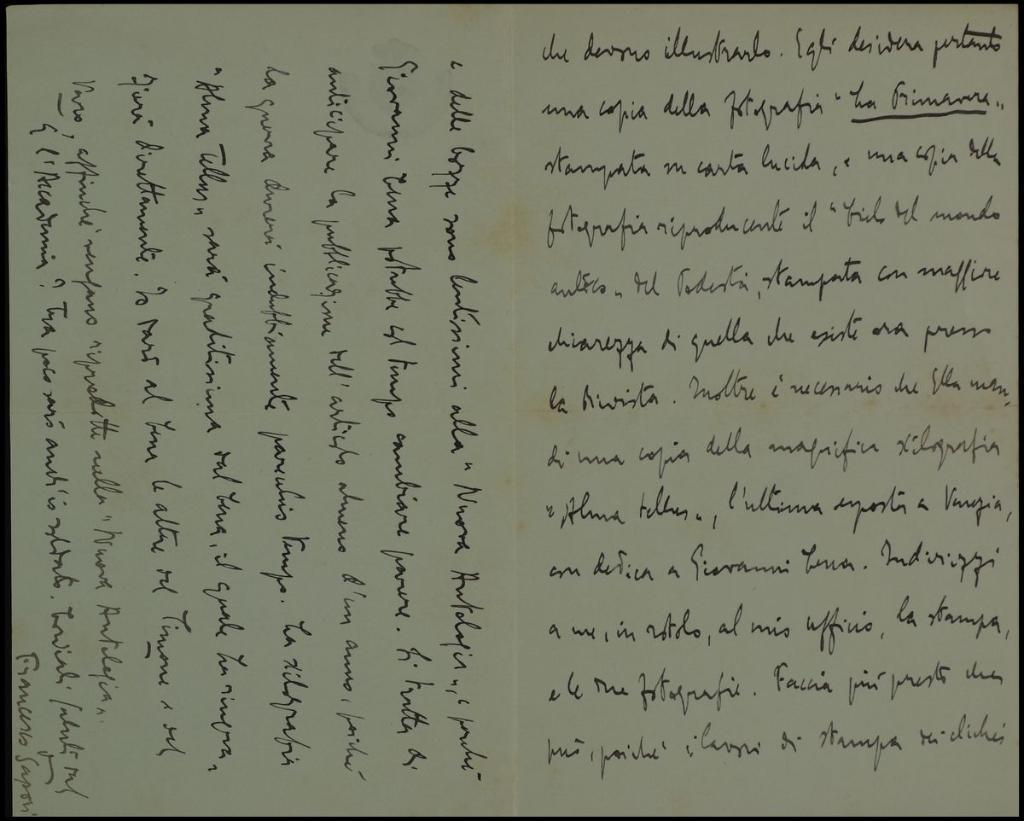 che devono illustrarlo. Egli desidera pertanto
una copia della fotografia "La Primavera„
stampata su carta lucida, e una copia della
fotografia riproducente il "Ciclo del mondo
antico„ del Podestà, stampata con maggiore
chiarezza di quella che esiste ora presso
la Rivista. Inoltre è necessario che Ella man-
di una copia della magnifica xilografia
"Alma tellus„, l'ultima esposta a Venezia,
con dedica a Giovanni Cena. Indirizzi
a me, in rotolo, al mio ufficio, la stampa,
e le due fotografie. Faccia più presto che
può, poiché i lavori di stampa dei clichés
e delle bozze sono lentissimi alla "Nuova Antologia„, e perché
Giovanni Cena potrebbe col tempo cambiare parere. Si tratta di
anticipare la pubblicazione dell'articolo almeno d'un anno, poiché
la guerra durerà indubbiamente parecchio tempo. La xilografia
"Alma Tellus„ sarà graditissima dal Cena, il quale La ringra-
zierà direttamente. Io darò al Cena le altre del Timone e del
Varo, affinché vengano riprodotte nella "Nuova Antologia„.
E l'Accademia? Tra poco sarò anch'io soldato. Cordiali saluti dal
Francesco Sapori